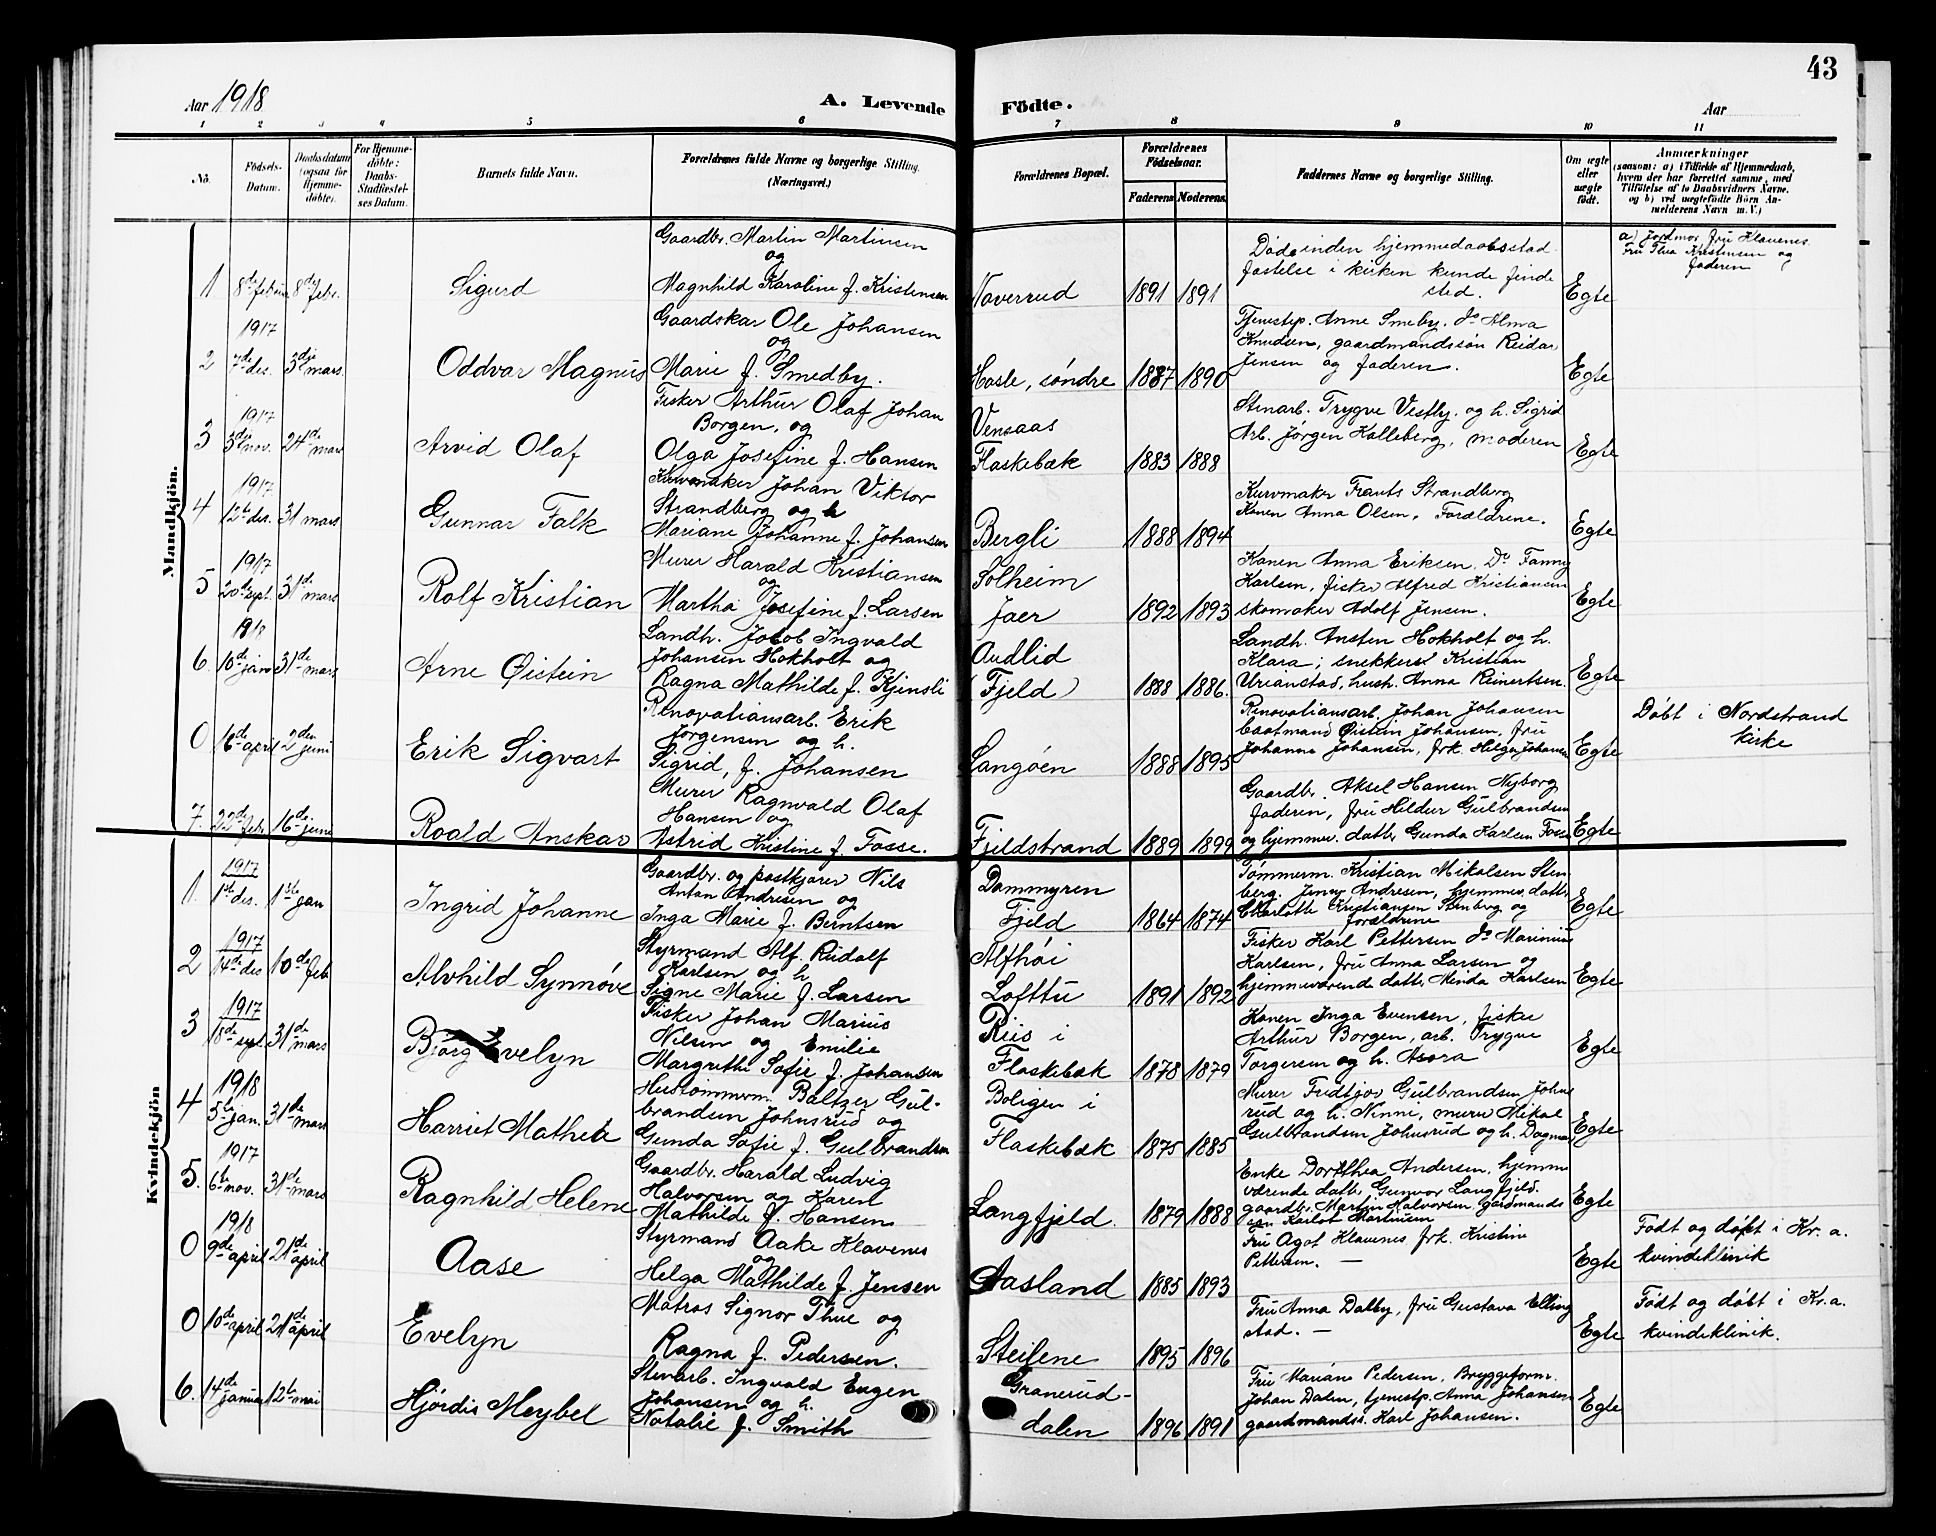 43
Aar 1918
A. Levende Födte.
Aar
1 2 3 4 5 6 7 8 9 10 11
Nô.
Födsels-Datum.
Daabsdatum (ogsaa for Hjemme-döbte).
For Hjemme-döbte: Daabs-Stadfæstel-ses Datum.
Barnets fulde Navn.
Forældrenes fulde Navne og borgerlige Stilling. (Næringsvei.)
Forældrenes Bopæl.
Forældrenes Födselsaar.
Faderens. Moderens.
Faddernes Navne og borgerlige Stilling.
Om ægte eller uægte födt.
Anmærkninger
(saasom: a) i Tilfælde af Hjemmedaab, hvem der har forrettet samme, med Tilföielse af to Daabsvidners Navne. og b) ved uægtefödte Börn An-melderens Navn m. V.)
Mandkjön.
1 8de februar 8de febr. Sigurd
Gaardbr. Martin Martinsen
og
Magnhild Karoline f. Kristensen
Naverrud 1891 1891
Døde inden hjemmedaabsstad-
fæstelse i kirken kunde finde
sted.
Egte
a) Jordmor fru Klavenes.
Fru Thea Kristensen og
faderen
1917
2 7de des. 3die mars. Oddvar Magnus
Gaardskar Ole Johansen
og
Marie f. Smedby.
Hasle, søndre 1887 1890
Tjenestep. Anne Smeby. do Alma
Knudsen, gaardmandssøn Reidar
Jensen og faderen.
Egte
1917
3 3die nov. 24de mars Arvid Olaf
Fisker Arthur Olaf Johan
Borgen, og
Olga Josefine f. Hansen
Vensaas
Flaskebæk 1883 1888
Stenarb. Trygve Vestby. og h. Sigrid
Arb. Jørgen Kalleberg, moderen
Egte
1917
4 12te des. 31 mars Gunnar Falk
Kurvmaker Johan Viktor
Strandberg og h
Mariane Johanne f. Johansen
Bergli 1888 1894
Kurvmaker Frants Strandberg
Konen Anna Olsen. Forældrene.
Egte
1917
5 20de sept. 31te mars Rolf Kristian
Murer Harald Kristiansen
og
Martha Josefine f. Larsen
Solheim
Jaer 1892 1893
Konen Anna Eriksen. Do Fanny
Karlsen, fisker Alfred Kristiansen
skomaker Adolf Jensen.
Egte
1918
6. 10de jan 31te mars Arne Øistein
Landh. Jacob Ingvald
Johansen Hokholt og
Ragna Mathilde f. Kjensli
Audlid
(Fjeld) 1888 1886.
Landh. Ansten Hokholt og h.
Klara; snekker Kristian
Uranstad, hush. Anna Reinertsen.
Egte
0 16de april 2den juni Erik Sigvart
Renovationsarb. Erik
Jørgensen og h.
Sigrid, f. Johansen
Langøen 1888 1895
Renovationsarb. Johan Johansen
baatmand Øistein Johansen, fru
Johanne Johansen, frk. Helga Johansen
Egte
Døbt i Nordstrand
kirke
7. 22de febr 16de juni Roald Anskar
Murer Ragnvald Olaf
Hansen og
Astrid Kristine f. Fosse.
Fjeldstrand 1889 1899
Gaardbr. Aksel Hansen Nyborg
faderen, fru Hildur Gulbrandsen
og hjemmev. datter Gunda Karlsen Fosse
Egte
Kvindekjön
1917
1. 1ste des. 1ste jan Ingrid Johanne
Gaardbr. og postkjører Nils
Anton Andresen og
Inga Marie f. Berntsen
Dammyren
Fjeld 1864 1874
Tømmerm. Kristian Mikalsen Sten
berg. Jenny Andresen, hjemmev. datter
Charlotte Kristiansen Stenberg og
forældrene
Egte
1917
2 14de des 10de feb Alvhild Synnøve
Styrmand Alf. Rudolf
Karlsen og h
Signe Marie f. Larsen
Alfhøi
Lofttu 1891 1892
Fisker Karl Pettersen do Marinius
Karlsen, fru Anna Larsen og
hjemmeværend datter Minda Karlsen
Egte
1917
3 18de sept. 31te mars Bjørg Evelyn
Fisker Johan Marius
Nilsen og Emilie
Margrethe Sofie f. Johansen
Riis i
Flaskebæk 1878 1879
Konen Inga Evensen, fisker
Arthur Borgen, arb. Trygve
Torgersen og h. Asora
Egte
1918
4 5te jan. 31te mars Harriet Mathea
Hustømmerm. Baltzer Gul-
brandsen Johnsrud og
Gunda Sofie f. Gulbrandsen
Boligen i
Flaskebæk 1875 1885
Murer Fridtjov Gulbrandsen Johns
rud og h. Ninni, murer Mikal
Gulbrandsen Johnsrud og h. Dagmar
Egte
1917
5. 6te nov. 31te mars Ragnhild Helene
Gaardbr. Harald Ludvig
Halvorsen og Karen
Mathilde f. Hansen
Langfjeld. 1879 1888
Enke Dorthea Andersen, hjemme
værende datter Gunvor Langfjeld.
gaardbr. Martin Halvorsen. gardmands
søn Karlot Martinsen
Egte
1918
0 9de april 21de april Aase
Styrmand Aake Klavenes
og
Helga Mathilde f. Jensen
Aasland 1885 1893
Fru Agot Klavenes frk. Kristine
Pettersen. —
Egte
Født og døbt i Kr. a.
kvindeklinik
0 10de april 21de april Evelyn
Matros Signor Thue og
Ragna f. Pedersen.
Steilene 1895 1896
Fru Anna Dalby, fru Gustava Elling
stad. —
Egte
Født og døbt i Kr.a.
kvindeklinik.
6. 14de januar 12te mai Hjørdis Meybel
Stenarb. Ingvald Eugen
Johansen og h.
Natalie f. Smith
Granerud-
dalen 1896 1891
Fru Mariane Pedersen, Bryggeform.
Johan Dalen, tjenestp. Anna Johansen
gaardmands. Karl Johansen.
Egte